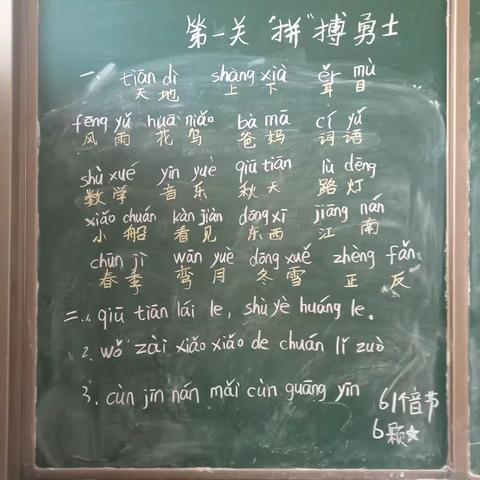 第一关 "拼"搏勇士
一 tiān dì shàng xià ěr mù
天 地 上 下 耳 目
fēng yǔ huā niǎo bà mā cí yǔ
风 雨 花 鸟 爸 妈 词 语
shù xué yīn yuè qiū tiān lù dēng
数 学 音 乐 秋 天 路 灯
xiǎo chuán kàn jiàn dōng xī jiāng nán
小 船 看 见 东 西 江 南
chūn jì wān yuè dōng xuě zhèng fǎn
春 季 弯 月 冬 雪 正 反
二 1. qiū tiān lái le, shù yè huáng le.
2. wǒ zài xiǎo xiǎo de chuán lǐ zuò
3. cùn jīn nán mǎi cùn guāng yīn
61个音节
6颗☆